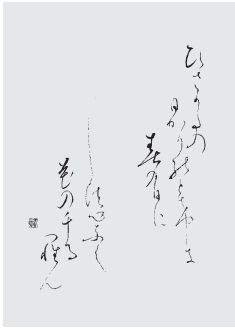 ひさかたの
日かりのとけき
春の日に
しつ心なく
花の千る
らん